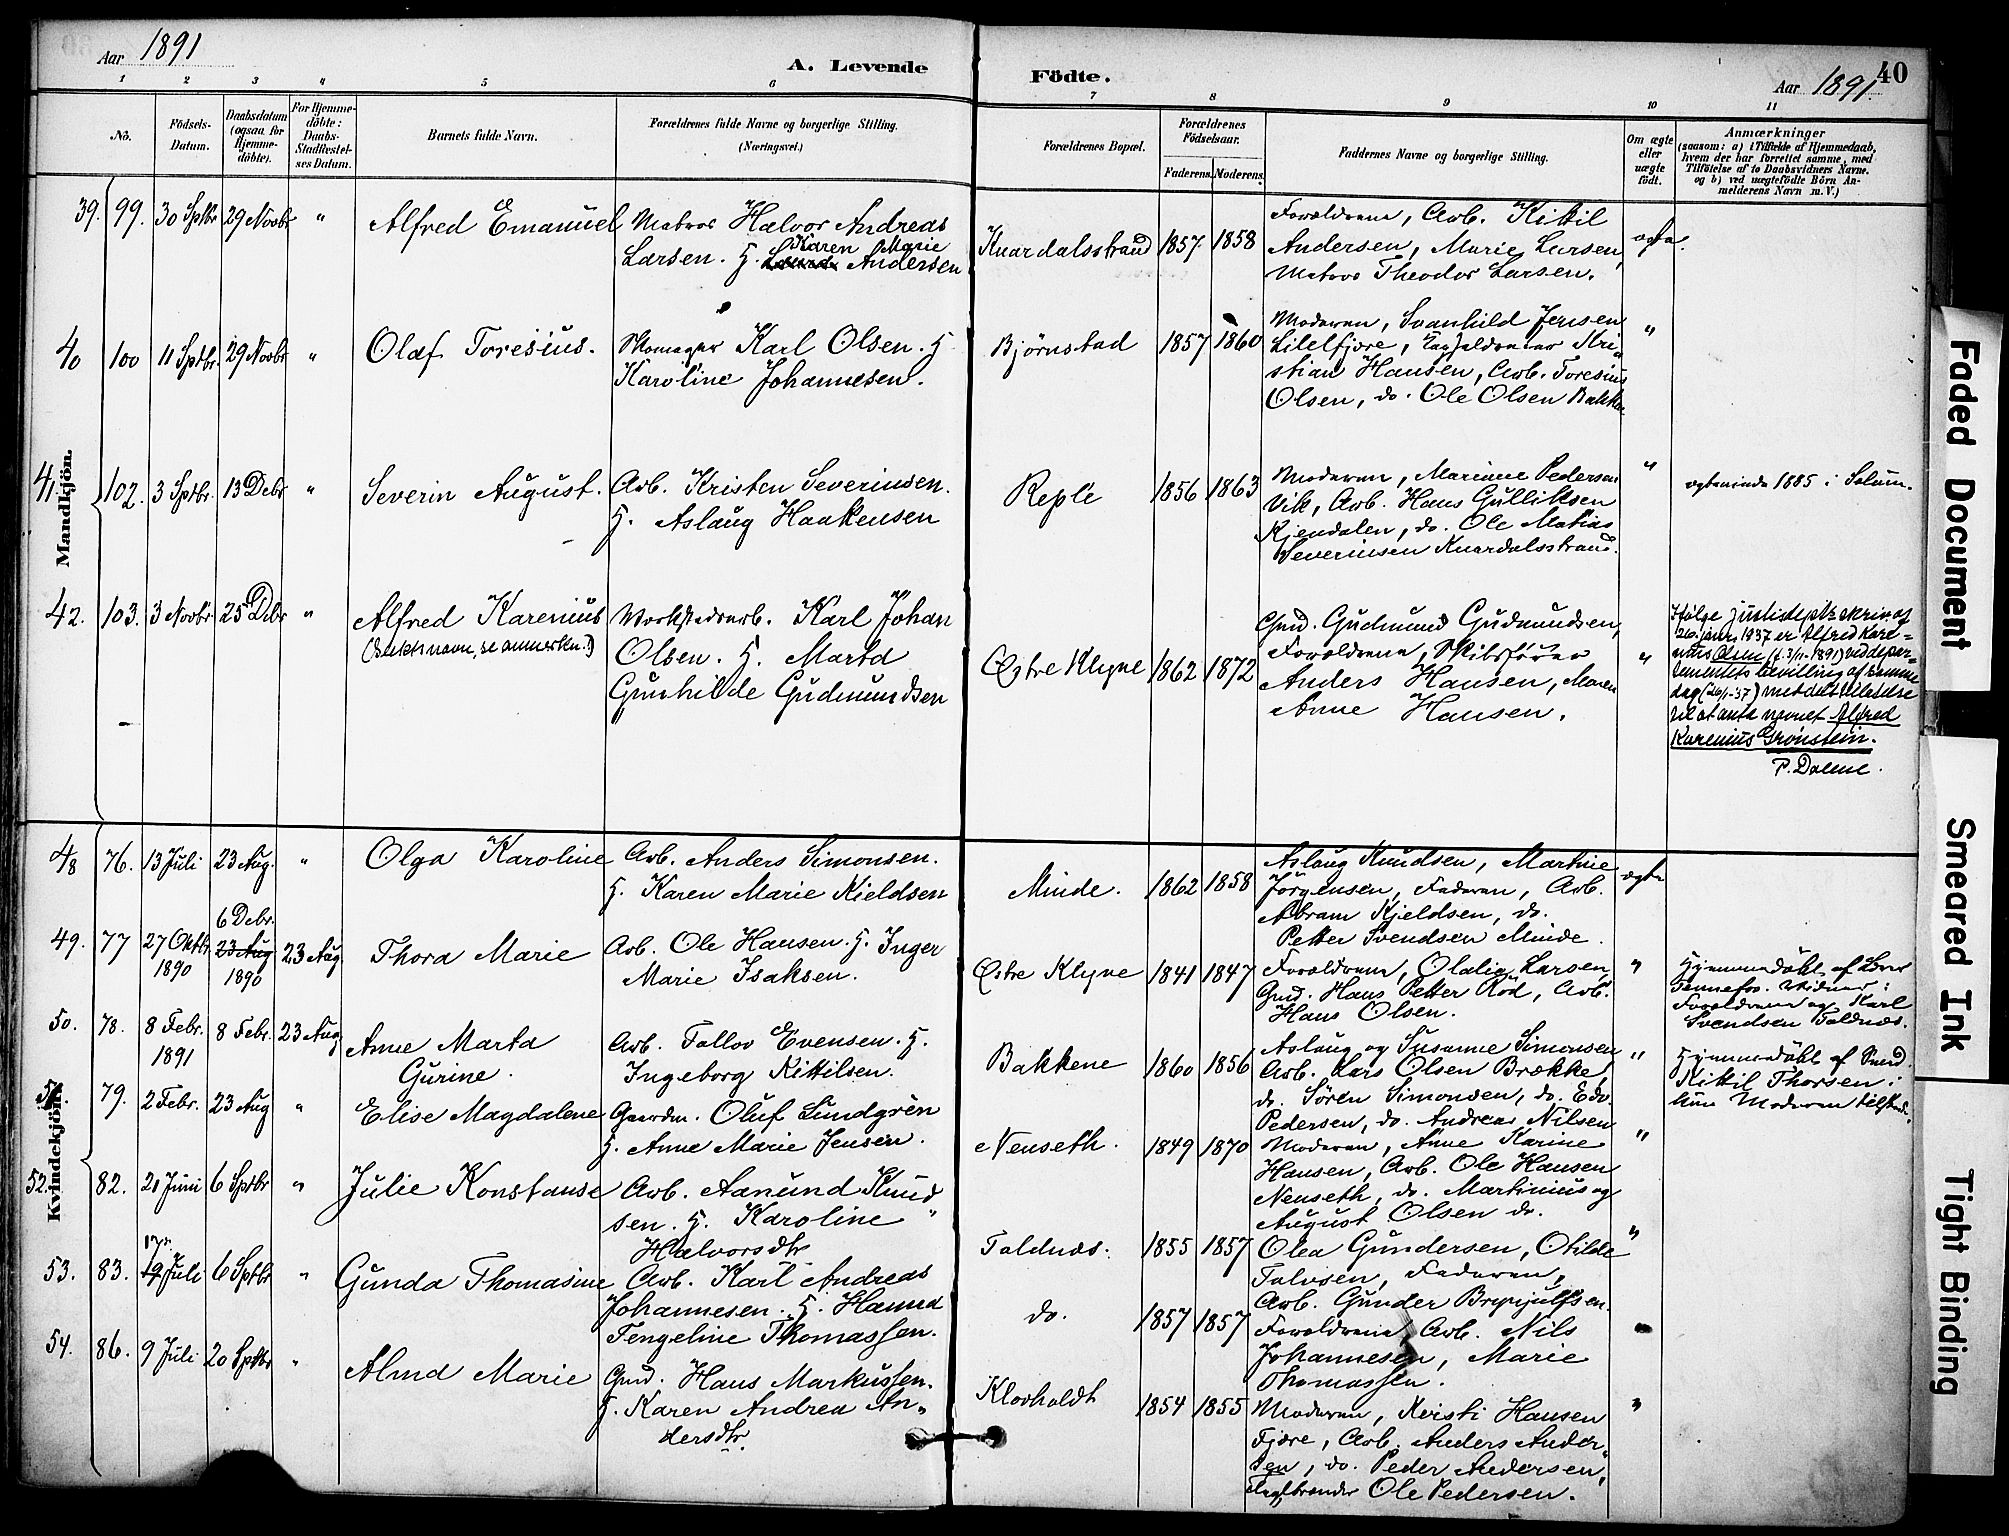 Aar 1891
A. Levende
Födte.
Aar 1891.
40
1 2 3 4 5 6 7 8 9 10 11
No.
Födsels-
Datum.
Daabsdatum
(ogsaa for
Hjemme-
döbte).
For Hjemme-
döbte:
Daabs-
Stadfæstel-
ses Datum.
Barnets fulde Navn.
Forældrenes fulde Navne og borgerlige Stilling.
(Næringsvei.)
Forældrenes Bopæl.
Forældrenes
Födselsaar.
Faderens. Moderens.
Faddernes Navne og borgerlige Stilling.
Om ægte
eller
uægte
födt.
Anmærkninger
(saasom: a) i Tilfælde af Hjemmedaab,
hvem der har forrettet samme, med
Tilföielse af to Daabsvidners Navne.
og b) ved uægtefödte Börn An-
melderens Navn m. V.)
Mandkjön.
39. 99. 30 Sptbr 29 Novbr "
Alfred Emanuel
Matros Halvor Andreas
Karen Marie
Larsen. H. Andersen
Knardalsstrand
1857 1858
Forældrene, Arb. Kittil
Andersen, Marie Larsen,
Matros Theodor Larsen.
ægte.
40 100 11 Sptbr. 29 Novbr "
Olaf Toresius.
Skomager Karl Olsen. H
Karoline Johannesen.
Björnstad
1857 1860
Moderen, Svanhild Jensen
Lilelfjære, Kri-
stian Hansen, Arb. Toresius
Olsen, do. Ole Olsen Bakka
"
41 102. 3 Sptbr. 13 Debr "
Severin August.
Arb. Kristen Severinsen.
H. Aslaug Haakensen
Reple
1856 1863
Moderen, Marinee Pedersen
Vik, Arb. Hans Gulliksen
Kjendalen, do. Ole Matias
Severinsen Knardalsstrand.
"
1885 i Solum.
42. 103. 3 Novbr 25 Debr "
Alfred Karenius
(Slektsnavn, se anmerkn.)
Verkstedsarb. Karl Johan
Olsen. H. Marta
Gunhilde Gudmundsen
Østre Klyve
1862 1872
Gmd. Gudmund Gudmundsen,
Forældrene, Skibsförer
Anders Hansen, Maren
Anne Hansen.
"
Ifølge justisdeptz skriv. af
26. janr. 1937 er Alfred Kare-
nius Olsen (f. 3/11-1891) ved depar-
tementets bevilling af samme
dag (26/1-37) meddelt tilladelse
til at anta navnet Alfred
Karenius Grønstein.
P. Dalene.
Kvindekjön.
48 76. 13 Juli 23 Aug. "
Olga Karoline
Arb. Anders Simonsen.
H. Karen Marie Kieldsen
Minde.
1862 1858
Aslaug Knudsen, Martine
Jörgensen, Faderen, Arb.
Abram Kjeldsen, do.
Petter Svendsen Minde.
ægte
49. 77 27 Oktbr
1890
6 Debr.
23 Aug
1890
23 Aug
Thora Marie
Arb. Ole Hansen. H. Inger
Marie Isaksen.
Østre Klyve
1841 1847
Forældrene, Olalie Larsen,
Gmd. Hans Petter Röd, Arb.
Hans Olsen.
"
Hjemmedöbt af
Vidner:
Forældrene og Karl
Svendsen Foldnæs.
50. 78. 8 Febr.
1891
8 Febr. 23 Aug
Anne Marta
Gurine.
Arb. Tallov Evensen. H.
Ingeborg Kittilsen.
Bakkene
1860 1856
Aslaug og Susanne Simonsen
Arb. Lars Olsen Brække,
do. Sören Simonsen, do. Edv.
Pedersen, do. Andreas Nilsen
"
Hjemmedöbt af
Kittil Thorsen:
kun Moderen tilstede.
79. 2 Febr. 23 Aug "
Elise Magdalene
Gaardm. Oluf Lundgren
H. Anne Marie Jensen.
Nenseth.
1849 1870
Moderen, Anne Karine
Hansen, Arb. Ole Hansen
Nenseth, do. Martinius og
August Olsen do.
"
52. 82. 21 Juni 6 Sptbr "
Julie Konstanse
Arb. Aanund Knud-
sen. H. Karoline
Halvorsdtr
Foldnæs.
1855 1857
Olea Gundersen, Otilde
Talvsen, Faderen,
Arb. Gunder Brynjulfsen.
"
53. 83. 19 Juli 6 Sptbr "
Gunda Thomasine
Arb. Karl Andreas
Johannesen. H. Hanna
Tengeline Thomassen.
do.
1857 1857
Forældrene, Arb. Nils
Johannesen, Marie
Thomassen.
54. 86. 9 Juli 20 Sptbr "
Alma Marie
Gmd. Hans Markussen.
H. Karen Andrea An-
dersdtr.
Klovholdt
1854 1855
Moderen, Kersti Hansen
Fjære, Arb. Anders Ander-
sen, do. Peder Andersen,
Teglbrænder Ole Pedersen.
"
Faded Document
Smeared Ink
Tight Binding